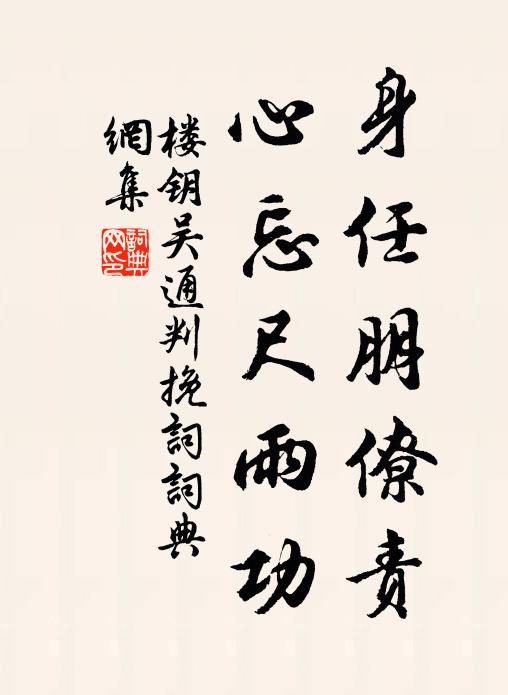 身任朋僚责
心忘尺雨功
楼钥吴通判挽詞詞典
網集
詞典
网印